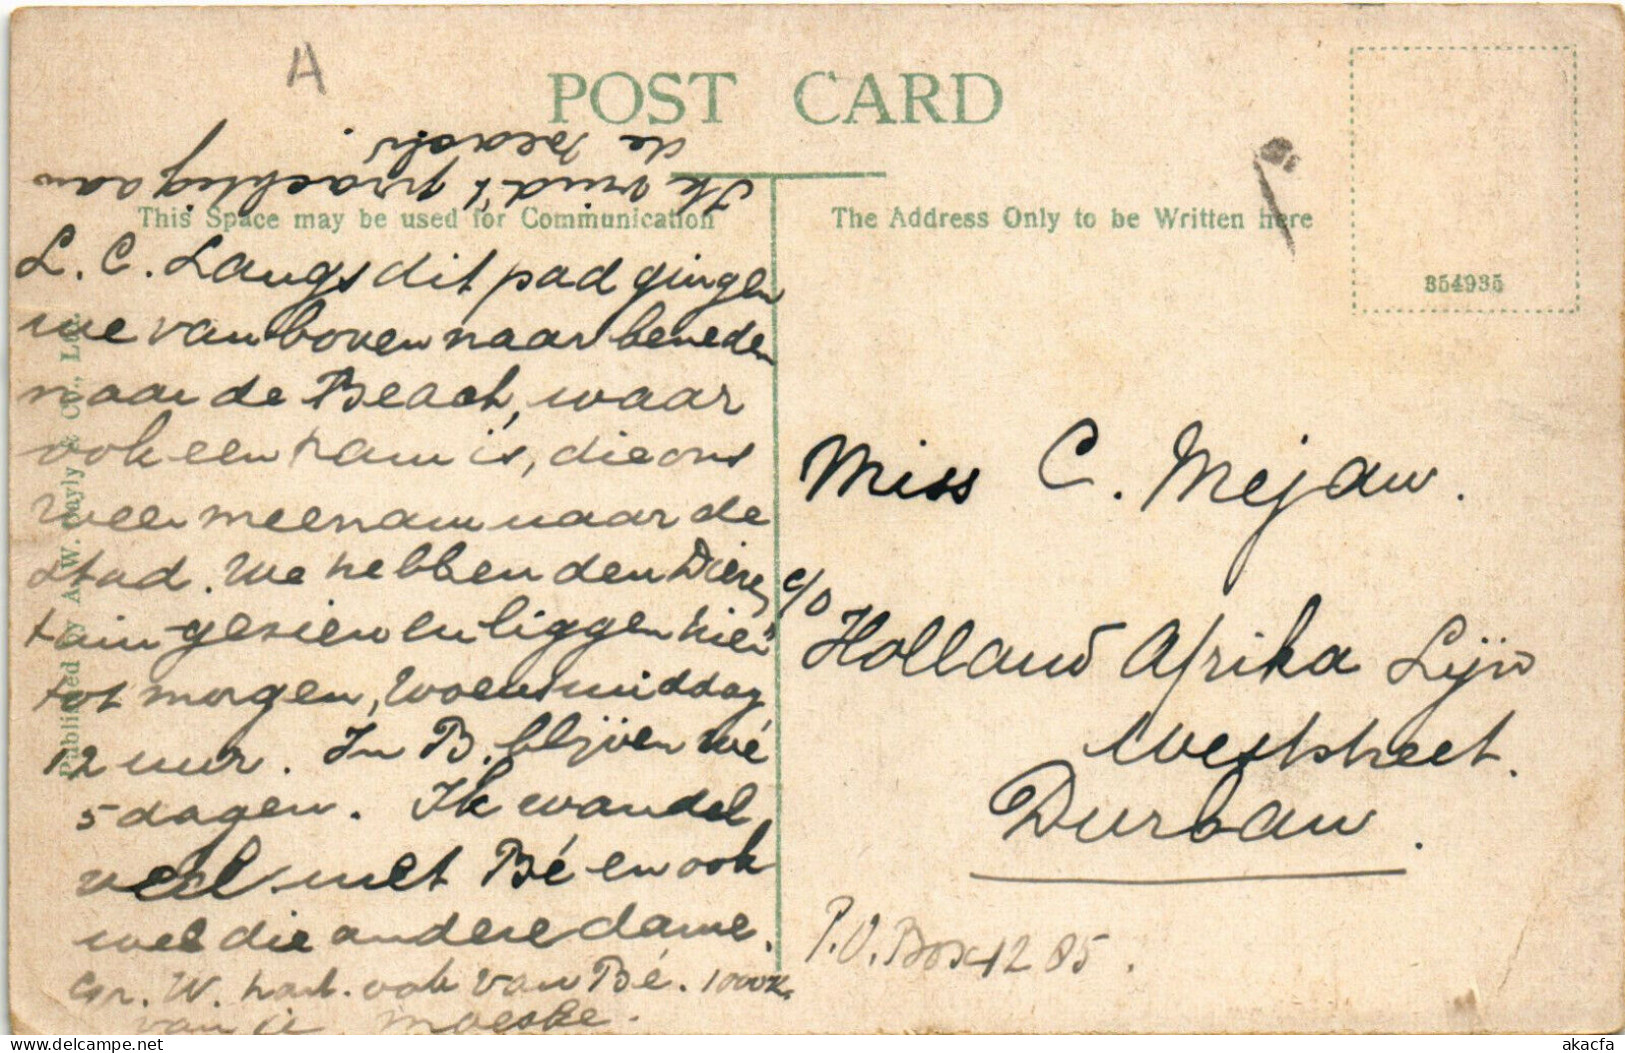 A
POST CARD
This Space may be used for Communication
The Address Only to be Written here
354935
Published by A. W. Bayly & Co., L.M.
L. C. Langs dit pad gingen
we van boven naar beneden
naar de Beach, waar
ook een tram is, die ons
weer meenam naar de
stad. We hebben den Dieren
tuin gezien en liggen hier
tot morgen, Woensmiddag
12 uur. In B. blijven we
5 dagen. Ik wandel
veel met Bé en ook
wel die andere dame.
Gr. W. hart. ook van Bé. 1000 k.
van je moeske.
Ik vind't prachtig aan
de Beach.
Miss C. Mejan.
c/o
Holland Afrika Lijn
Weststreet.
Durban.
P.O. Box 1285.
akacfa